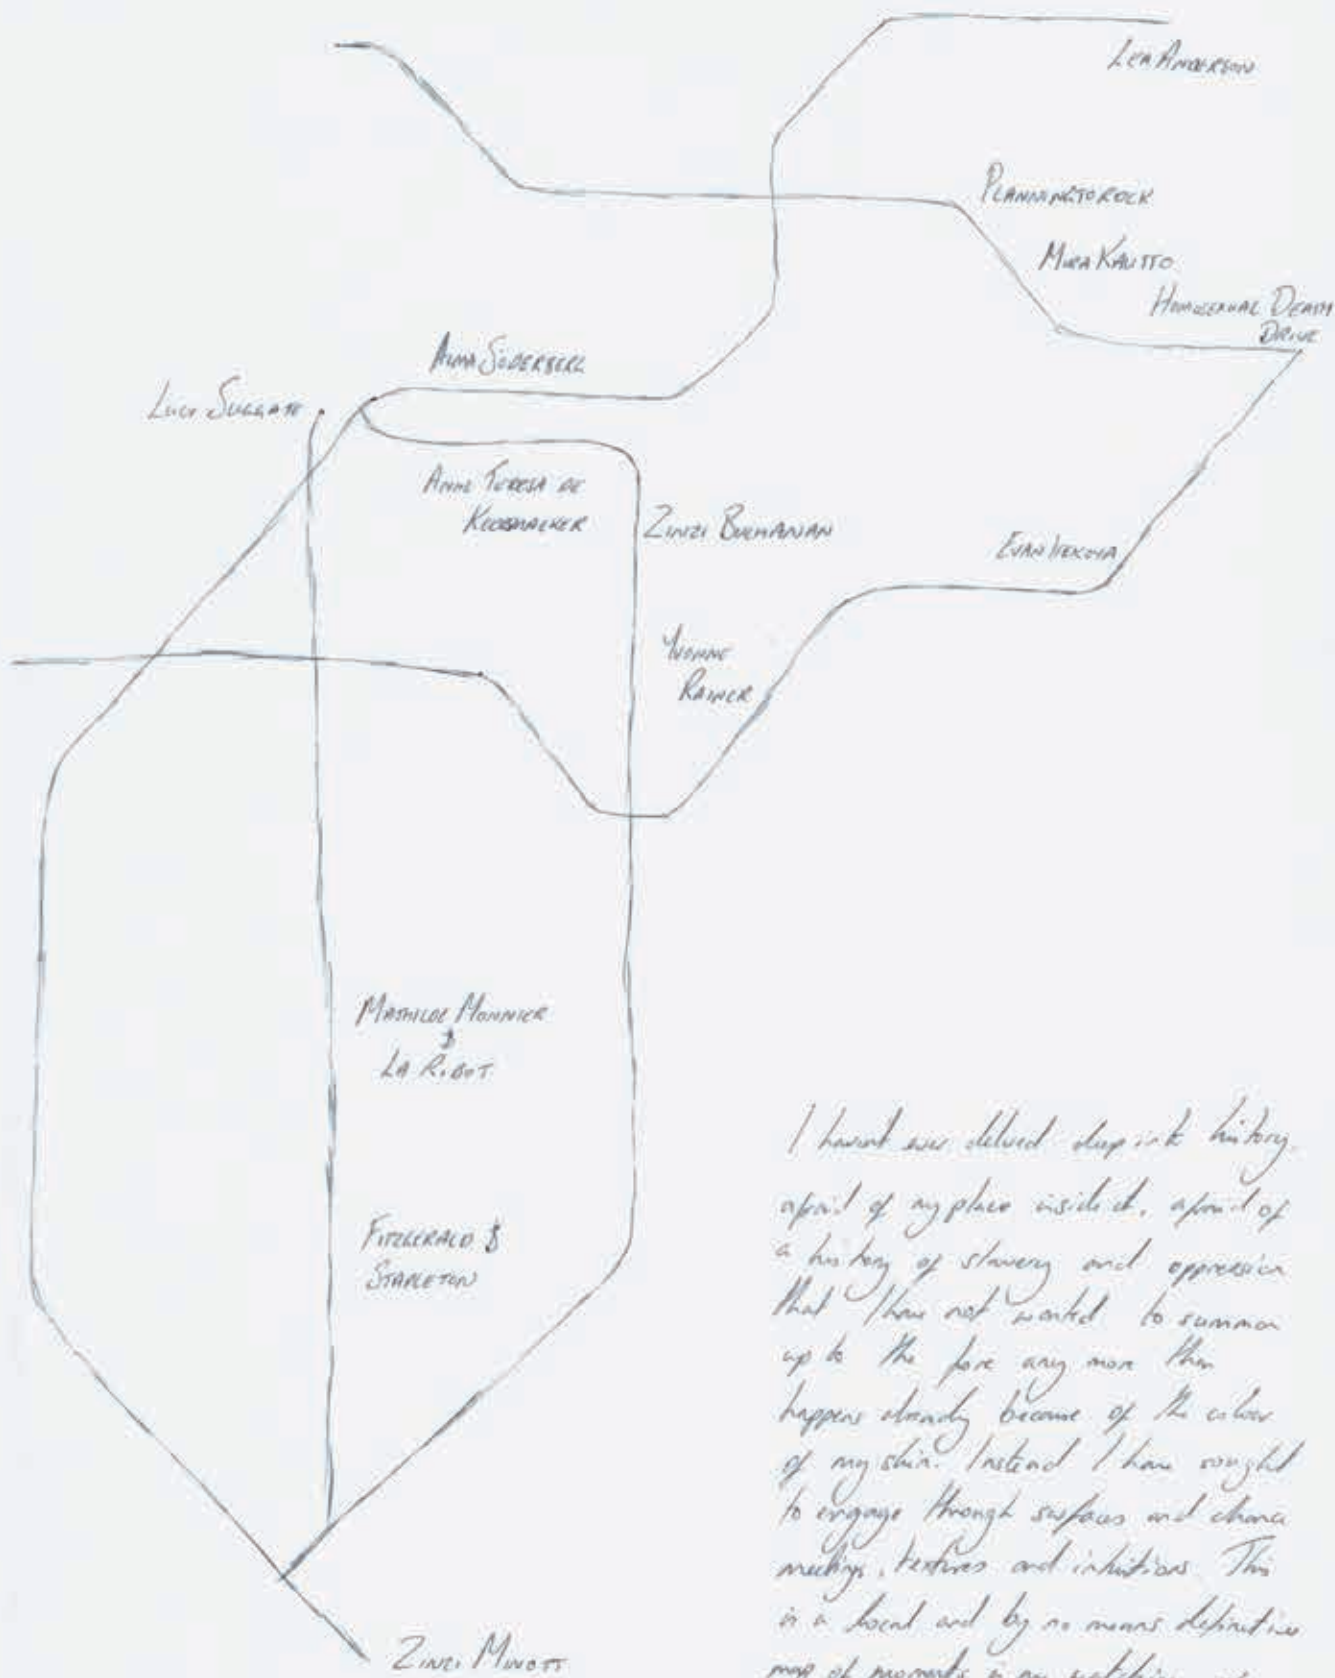 LEA ANDERSON
PLANNINGTOROCK
MIRA KAUTTO
HOMOSEXUAL DEATH
DRIVE
ALMA SÖDERBERG
LUCY SUGGATE
ANNE TERESA DE
KEERSMAEKER
ZINZI BUCHANAN
EVAN IFEKOYA
YVONNE
RAINER
MATHILDE MONNIER
&
LA RIBOT
FITZGERALD &
STAPLETON
ZINZI MINOTT
I havent ever delved deep into history,
afraid of my place inside it, afraid of
a history of slavery and oppression
that I have not wanted to summon
up to the fore any more than
happens already because of the colour
of my skin. Instead I have sought
to engage through surfaces and chance
meetings, textures and intuitions. This
is a local and by no means definitive
map of moments in my